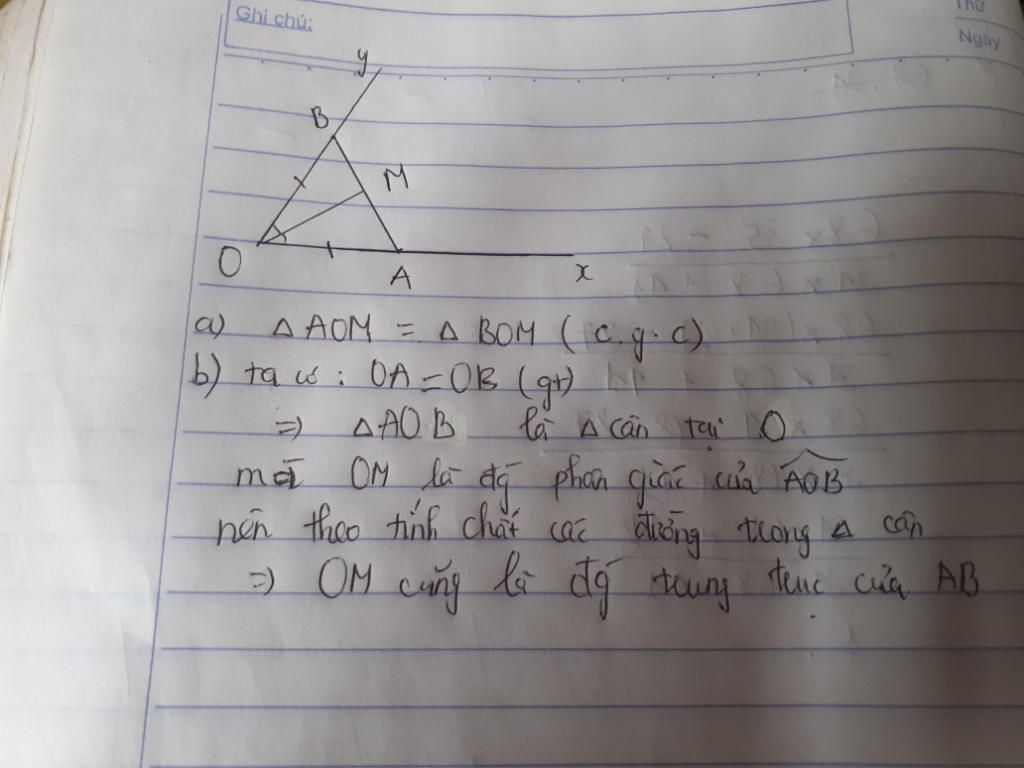 Ghi chú:
Thứ
Ngày
y
B
M
O
A
x
a) △ AOM = △ BOM ( c.g.c)
b) ta có : OA = OB (gt)
=> △AOB là △ cân tại O
mà OM là đg phân giác của AOB
nên theo tính chất các đường trong △ cân
=> OM cũng là đg trung trực của AB